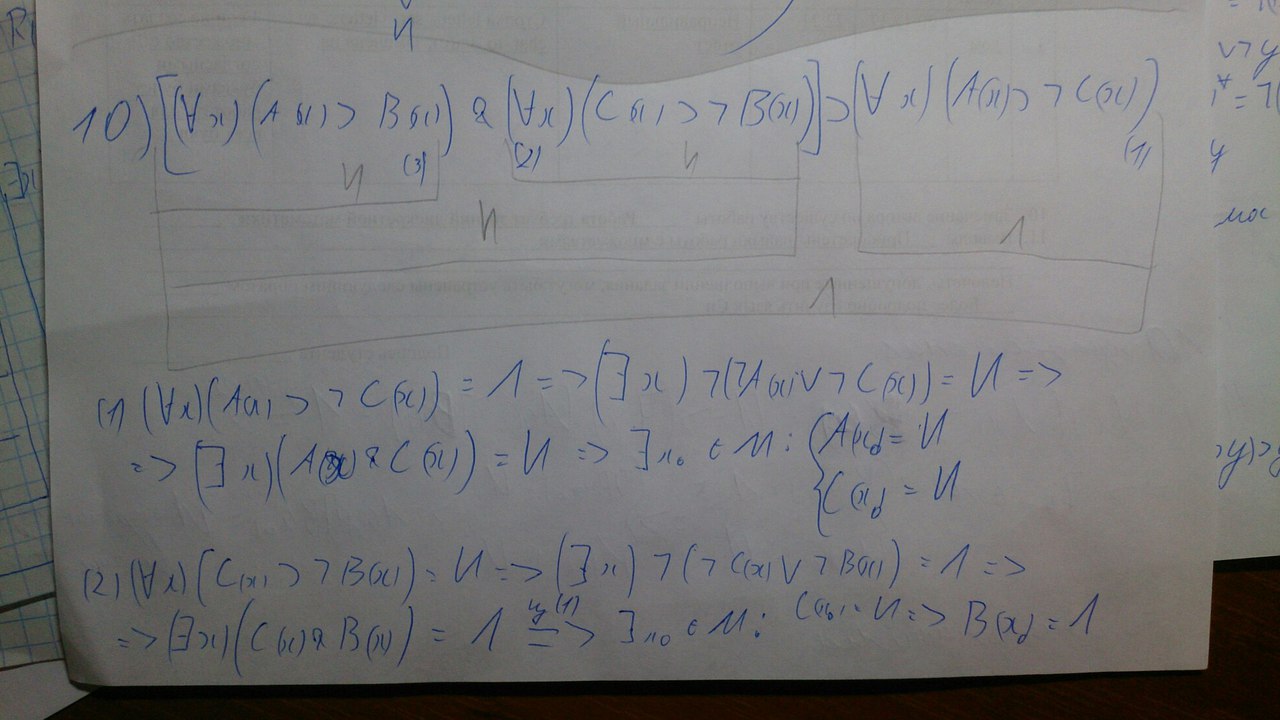 И
10) [(∀x)(A(x) ⊃ B(x)) & (∀x)(C(x) ⊃ ¬B(x))] ⊃ (∀x)(A(x) ⊃ ¬C(x))
(3) (2) (1)
И И
И Л
Л
(1) (∀x)(A(x) ⊃ ¬C(x)) = Л => (∃x) ¬(¬A(x) ∨ ¬C(x)) = И =>
=> (∃x)(A(x) & C(x)) = И => ∃x₀ ∈ M : { A(x₀) = И
C(x₀) = И
(2) (∀x)(C(x) ⊃ ¬B(x)) = И => (∃x) ¬(¬C(x) ∨ ¬B(x)) = Л =>
=> (∃x)(C(x) & B(x)) = Л из (1) => ∃x₀ ∈ M : C(x₀) = И => B(x₀) = Л